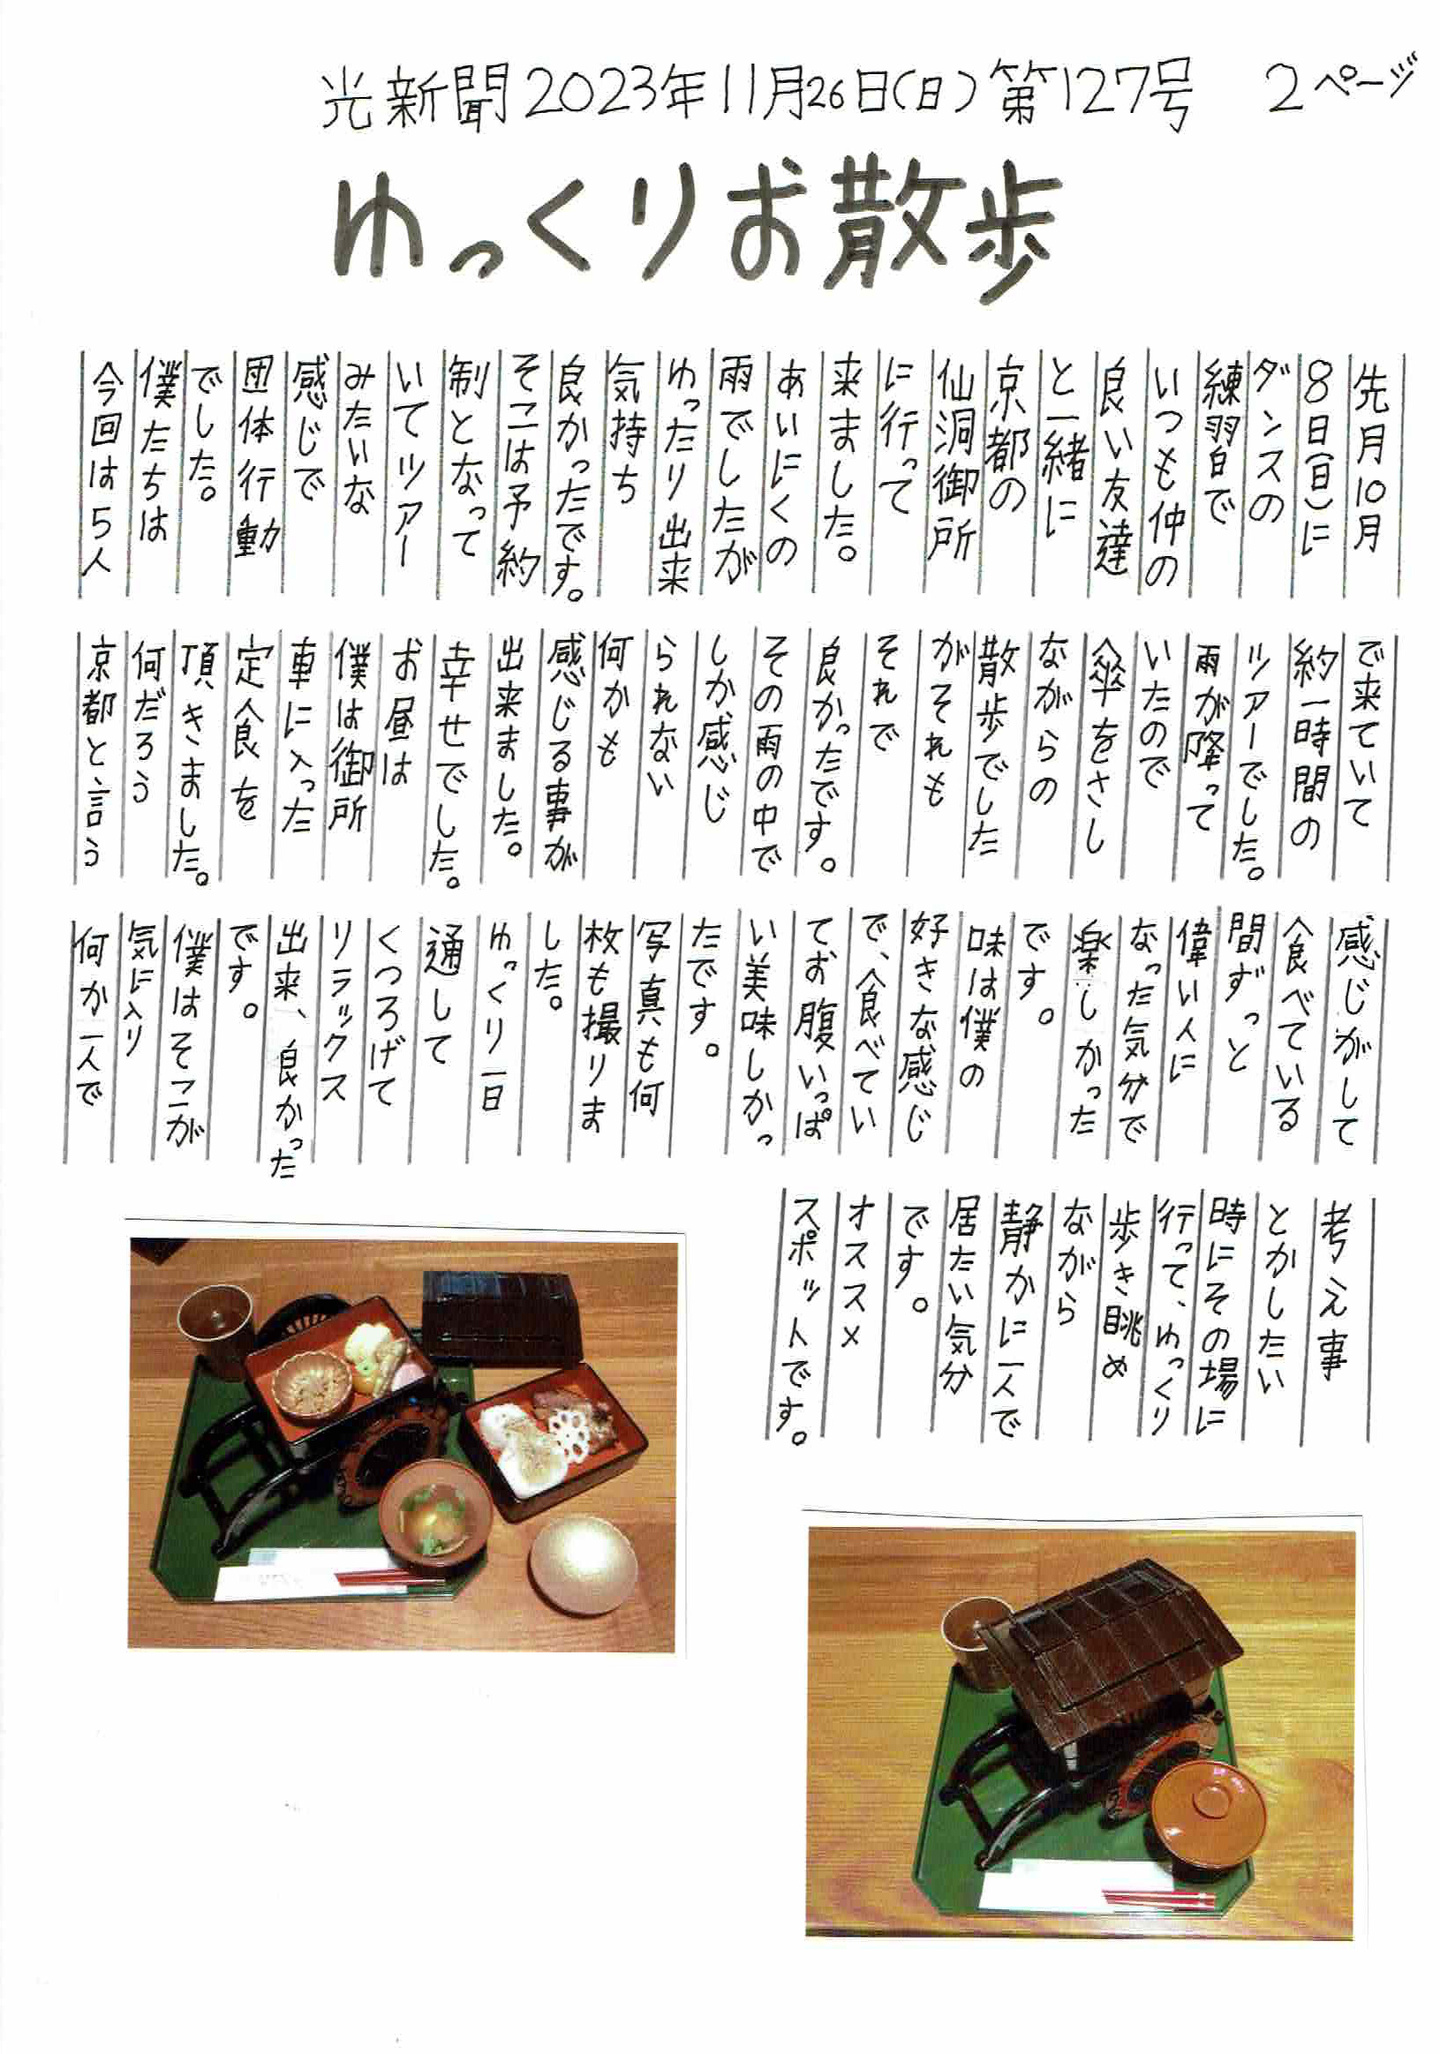 光新聞2023年11月26日(日)第127号 2ページ
ゆっくりお散歩
先月10月
8日(日)に
ダンスの
練習で
いつも仲の
良い友達
と一緒に
京都の
仙洞御所
に行って
来ました。
あいにくの
雨でしたが
ゆったり出来
気持ち
良かったです。
そこは予約
制となって
いてツアー
みたいな
感じで
団体行動
でした。
僕たちは
今回は5人
で来ていて
約一時間の
ツアーでした。
雨が降って
いたので
傘をさし
ながらの
散歩でした
がそれも
それで
良かったです。
その雨の中で
しか感じ
られない
何かも
感じる事が
出来ました。
幸せでした。
お昼は
僕は御所
車に入った
定食を
頂きました。
何だろう
京都と言う
感じがして
食べている
間ずっと
偉い人に
なった気分で
楽しかった
です。
味は僕の
好きな感じ
で、食べてい
てお腹いっぱ
い美味しかっ
たです。
写真も何
枚も撮りま
した。
ゆっくり一日
通して
くつろげて
リラックス
出来、良かった
です。
僕はそこが
気に入り
何か一人で
考え事
とかしたい
時にその場に
行って、ゆっくり
歩き眺め
ながら
静かに一人で
居たい気分
です。
オススメ
スポットです。